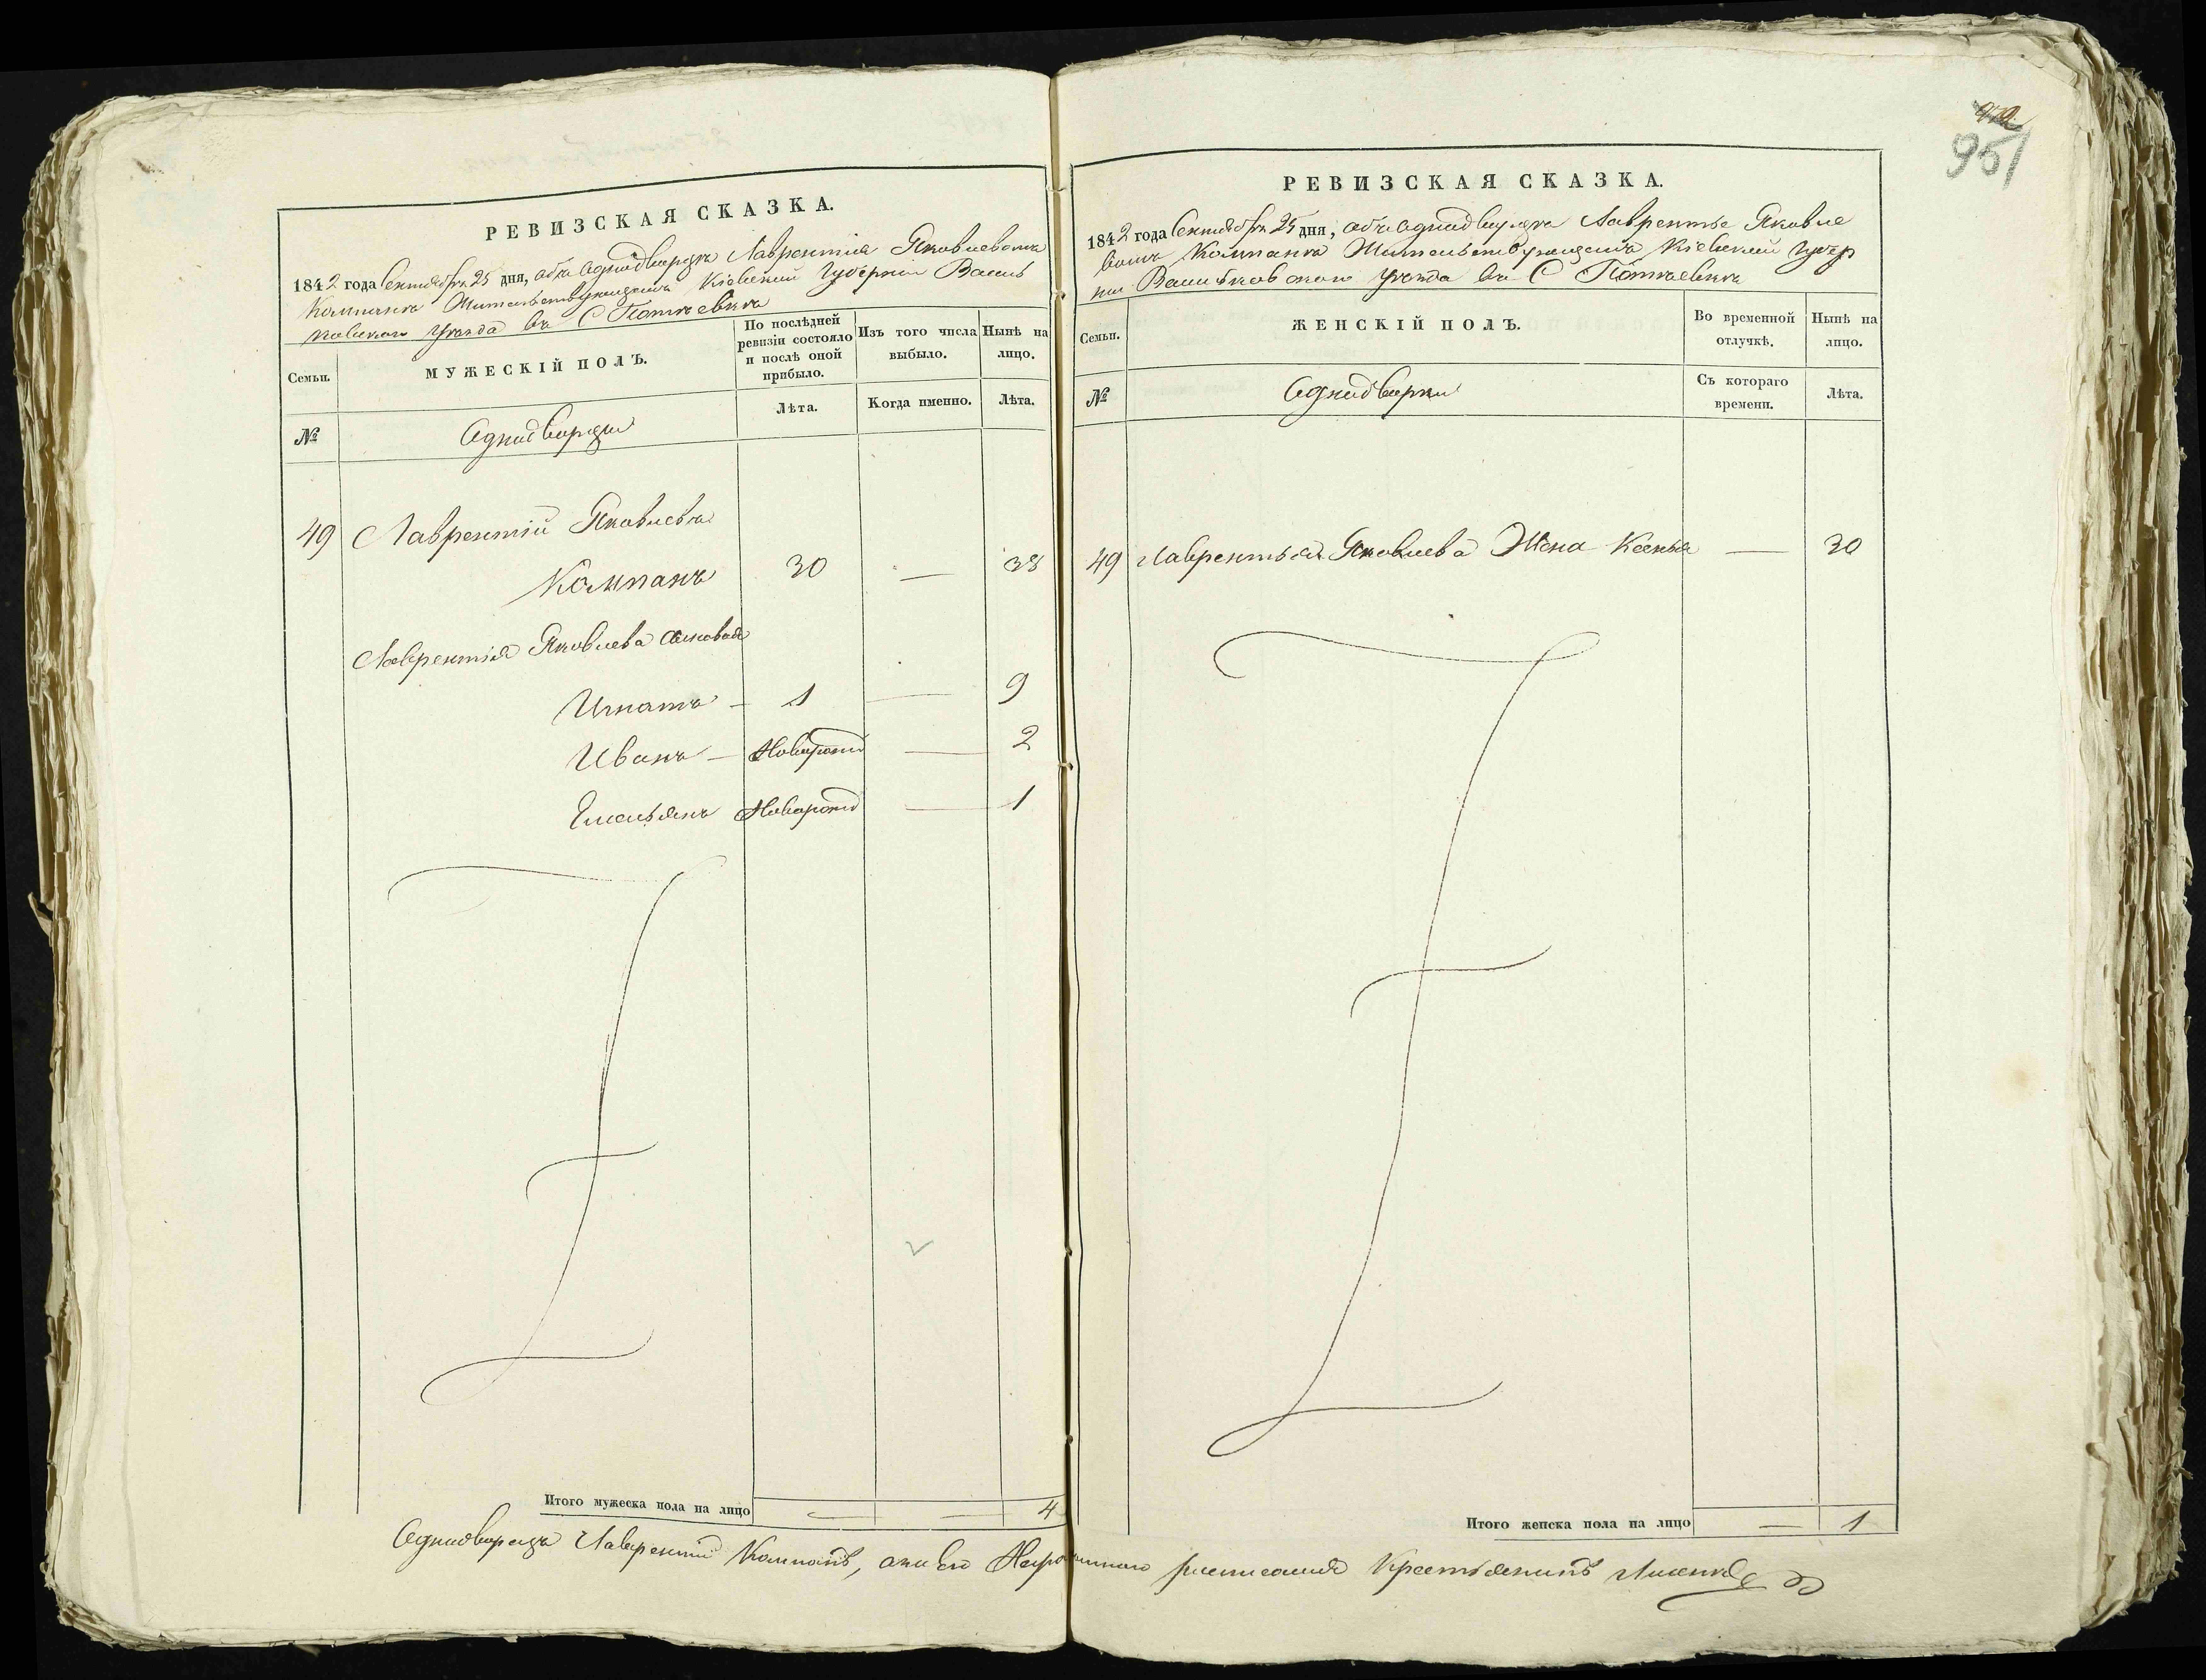 951
РЕВИЗСКАЯ СКАЗКА.
1842 года Сентября 25 дня, объ Однодворцѣ Лаврентіѣ Яковлевомъ
Компанѣ Жительствующемъ Кіевской Губерніи Василь
ковскаго Уѣзда въ С
Семьи.
МУЖЕСКІЙ ПОЛЪ.
По послѣдней ревизіи состояло и послѣ оной прибыло.
Изъ того числа выбыло.
Нынѣ на лицо.
№
Однодворцы
Лѣта.
Когда именно.
Лѣта.
49 Лаврентій Яковлевъ
Компанъ 30 — 38
Лаврентія Яковлева сыновья
Игнатъ — 1 — 9
Иванъ — Новорожд — 2
Емельянъ Новорожд — 1
Итого мужеска пола на лицо — — 4
РЕВИЗСКАЯ СКАЗКА.
1842 года Сентября 25 дня, объ Однодворцѣ Лаврентье Яковле
вомъ Компанѣ Жительствующемъ Кіевской Губер
ніи Васильковскаго Уѣзда въ С
Семьи.
ЖЕНСКІЙ ПОЛЪ.
Во временной отлучкѣ.
Нынѣ на лицо.
№
Однодворки
Съ котораго времени.
Лѣта.
49 Лаврентья Яковлева Жена Ксенья — 30
Итого женска пола на лицо — 1
Однодворецъ Лаврентій Компанъ, а Крестьянинъ